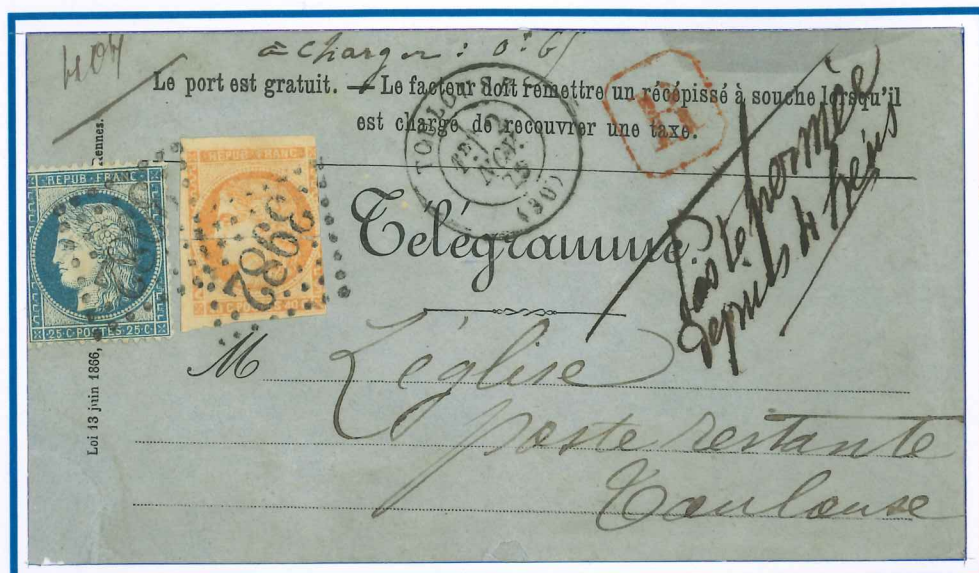 404
à charger : 0f 65
Le port est gratuit. — Le facteur doit remettre un récépissé à souche lorsqu'il
est chargé de recouvrer une taxe.
TOULOUSE
2
NOV.
75
(30)
R
Loi 13 juin 1866,
Rennes.
REPUB·FRANC
25·C·POSTES·25·C
REPUB·FRANC
3982
Télégramme.
depuis
M L'église
poste restante
Toulouse